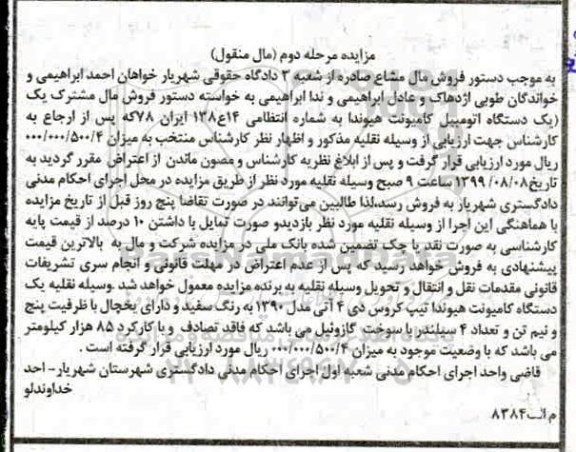 مزایده مرحله دوم (مال منقول)
به موجب دستور فروش مال مشاع صادره از شعبه ۳ دادگاه حقوقی شهریار خواهان احمد ابراهیمی و
خواندگان طوبی اژدهاک و عادل ابراهیمی و ندا ابراهیمی به خواسته دستور فروش مال مشترک یک
(یک دستگاه اتومبیل کامیونت هیوندا به شماره انتظامی ۱۴ع۱۳۸ ایران ۷۸که پس از ارجاع به
کارشناس جهت ارزیابی از وسیله نقلیه مذکور و اظهار نظر کارشناس منتخب به میزان ۰۰۰/۰۰۰/۵۰۰/۴
ریال مورد ارزیابی قرار گرفت و پس از ابلاغ نظریه کارشناس و مصون ماندن از اعتراض مقرر گردید به
تاریخ۱۳۹۹/۰۸/۰۸ ساعت ۹ صبح وسیله نقلیه مورد نظر از طریق مزایده در محل اجرای احکام مدنی
دادگستری شهریار به فروش رسد،لذا طالبین می‌توانند در صورت تقاضا پنج روز قبل از تاریخ مزایده
با هماهنگی این اجرا از وسیله نقلیه مورد نظر بازدیدو صورت تمایل با داشتن ۱۰ درصد از قیمت پایه
کارشناسی به صورت نقد یا چک تضمین شده بانک ملی در مزایده شرکت و مال به بالاترین قیمت
پیشنهادی به فروش خواهد رسید که پس از عدم اعتراض در مهلت قانونی و انجام سری تشریفات
قانونی مقدمات نقل و انتقال و تحویل وسیله نقلیه به برنده مزایده معمول خواهد شد .وسیله نقلیه یک
دستگاه کامیونت هیوندا تیپ کروس دی ۴ آتی مدل ۱۳۹۰ به رنگ سفید و دارای یخچال با ظرفیت پنج
و نیم تن و تعداد ۴ سیلندر با سوخت گازوئیل می باشد که فاقد تصادف و با کارکرد ۸۵ هزار کیلومتر
می باشد که با وضعیت موجود به میزان ۰۰۰/۰۰۰/۵۰۰/۴ ریال مورد ارزیابی قرار گرفته است .
قاضی واحد اجرای احکام مدنی شعبه اول اجرای احکام مدنی دادگستری شهرستان شهریار- احد
خداوندلو
م الف۸۳۸۴